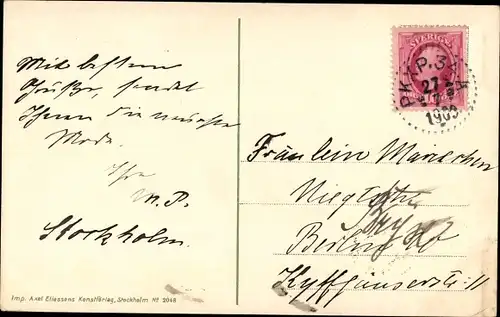 Mit besten
Grüße, sendet
Ihnen die neueste
Mode.
Ihr
M.P.
Stockholm.
SVERIGE
PKXP.37A
27
1903
Fräulein
Berlin
Kyffhäuserstr. 11
Imp. Axel Eliassens Konstförlag, Stockholm Nº 2048